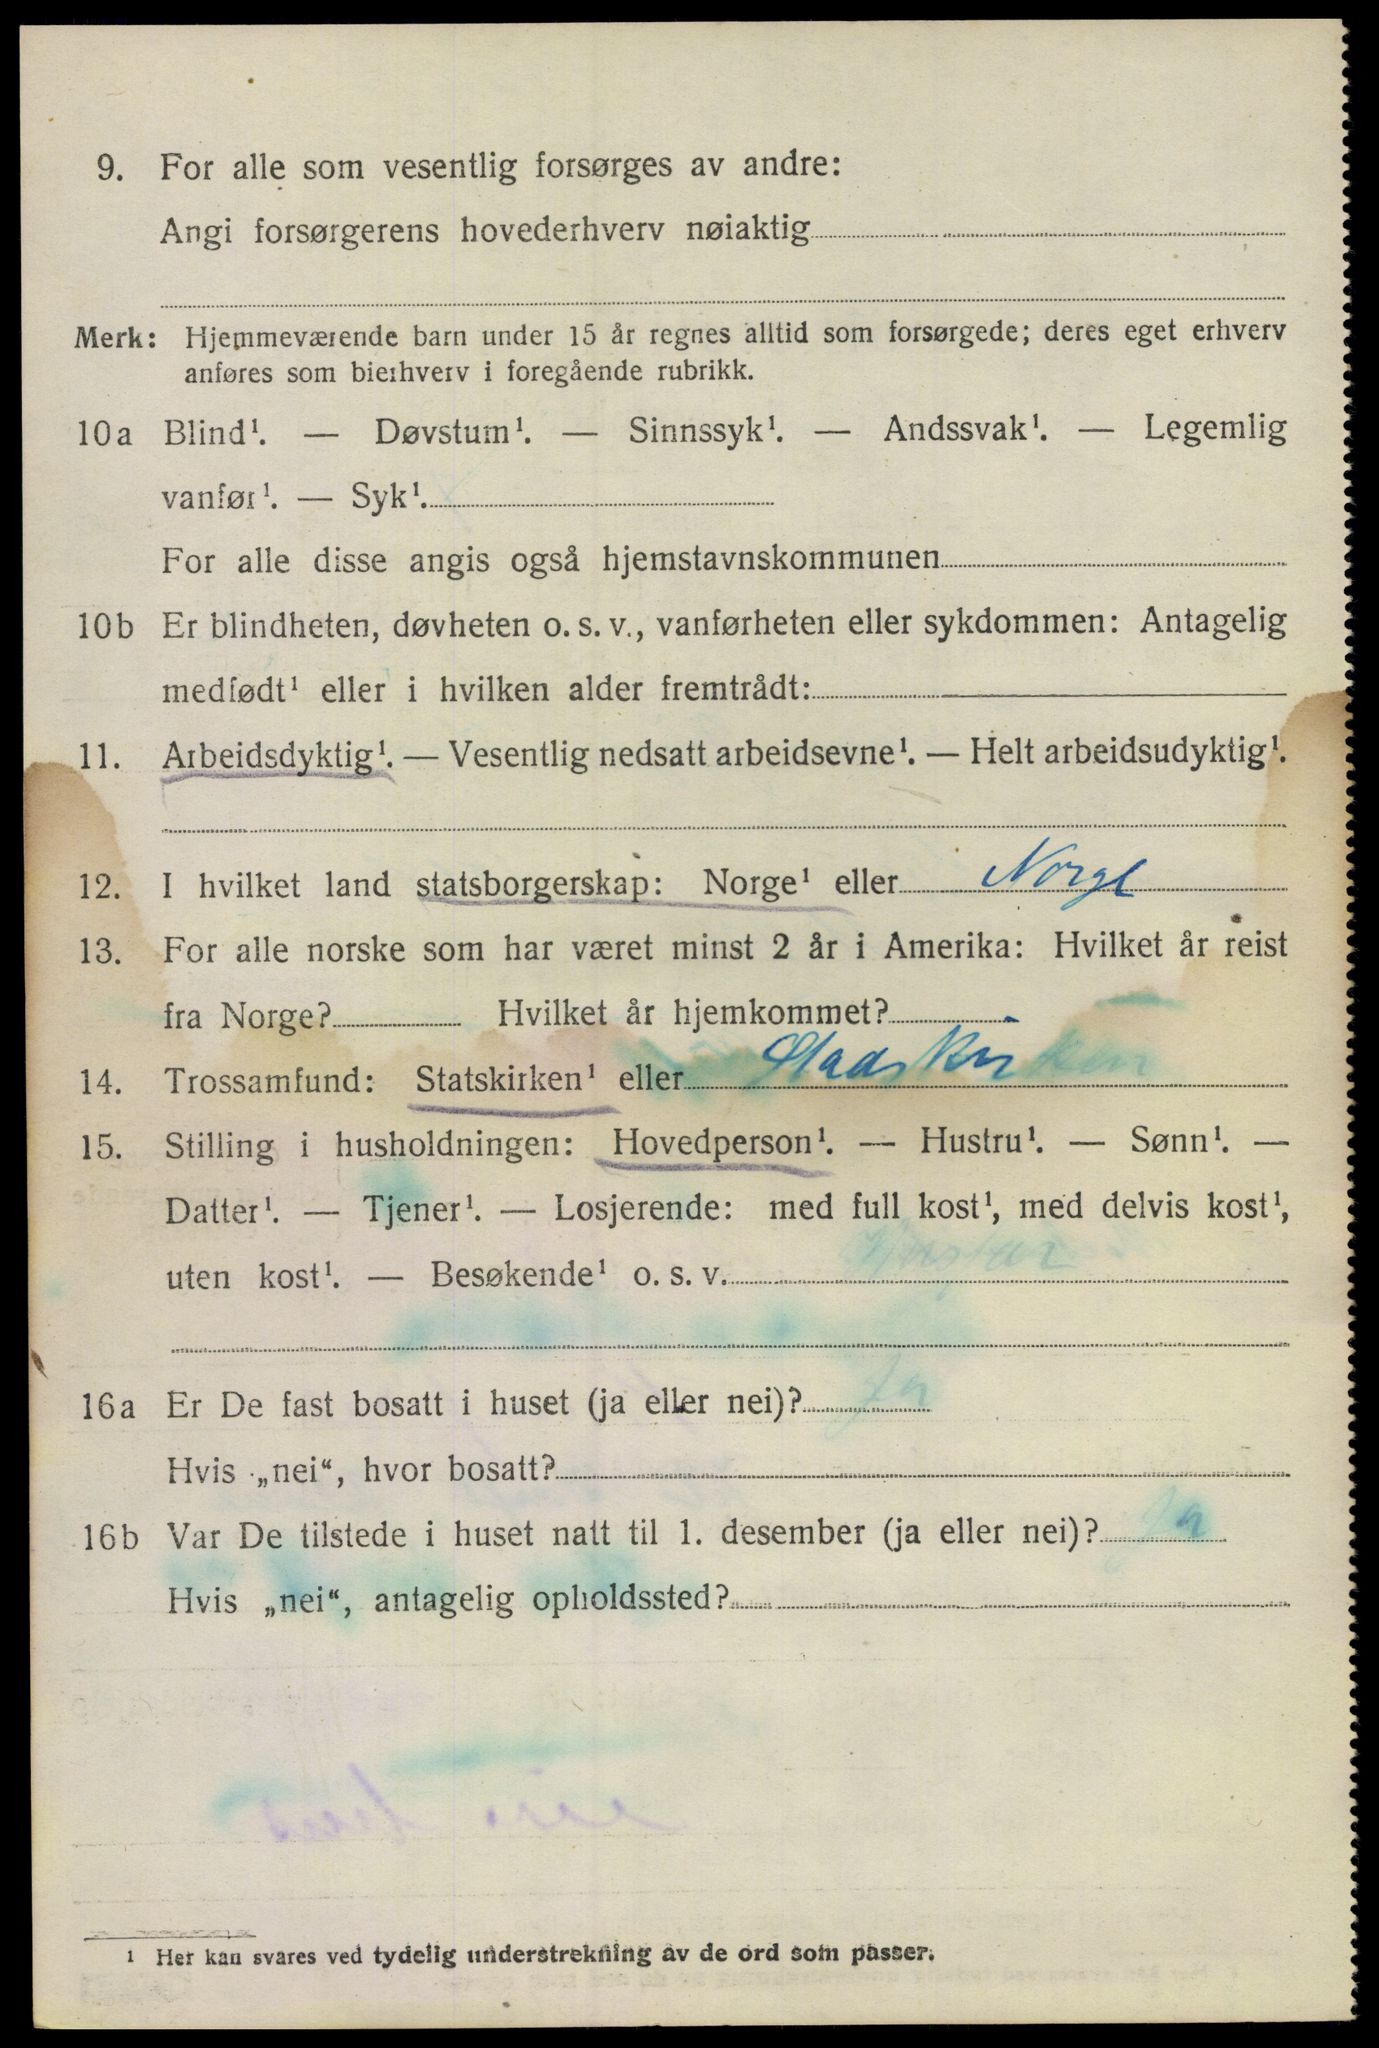 9. For alle som vesentlig forsørges av andre:
Angi forsørgerens hovederhverv nøiaktig
Merk: Hjemmeværende barn under 15 år regnes alltid som forsørgede; deres eget erhverv
anføres som bierhverv i foregående rubrikk.
10a Blind¹. — Døvstum¹. — Sinnssyk¹. — Andssvak¹. — Legemlig
vanfør¹. — Syk¹.
For alle disse angis også hjemstavnskommunen
10b Er blindheten, døvheten o. s. v., vanførheten eller sykdommen: Antagelig
medfødt¹ eller i hvilken alder fremtrådt:
11. Arbeidsdyktig¹. — Vesentlig nedsatt arbeidsevne¹. — Helt arbeidsudyktig¹.
12. I hvilket land statsborgerskap: Norge¹ eller Norge
13. For alle norske som har været minst 2 år i Amerika: Hvilket år reist
fra Norge? Hvilket år hjemkommet?
14. Trossamfund: Statskirken¹ eller Stadskirken
15. Stilling i husholdningen: Hovedperson¹. — Hustru¹. — Sønn¹. —
Datter¹. — Tjener¹. — Losjerende: med full kost¹, med delvis kost¹,
uten kost¹. — Besøkende¹ o. s. v.
16a Er De fast bosatt i huset (ja eller nei)? Ja
Hvis „nei“, hvor bosatt?
16b Var De tilstede i huset natt til 1. desember (ja eller nei)? Ja
Hvis „nei“, antagelig opholdssted?
¹ Her kan svares ved tydelig understrekning av de ord som passer.